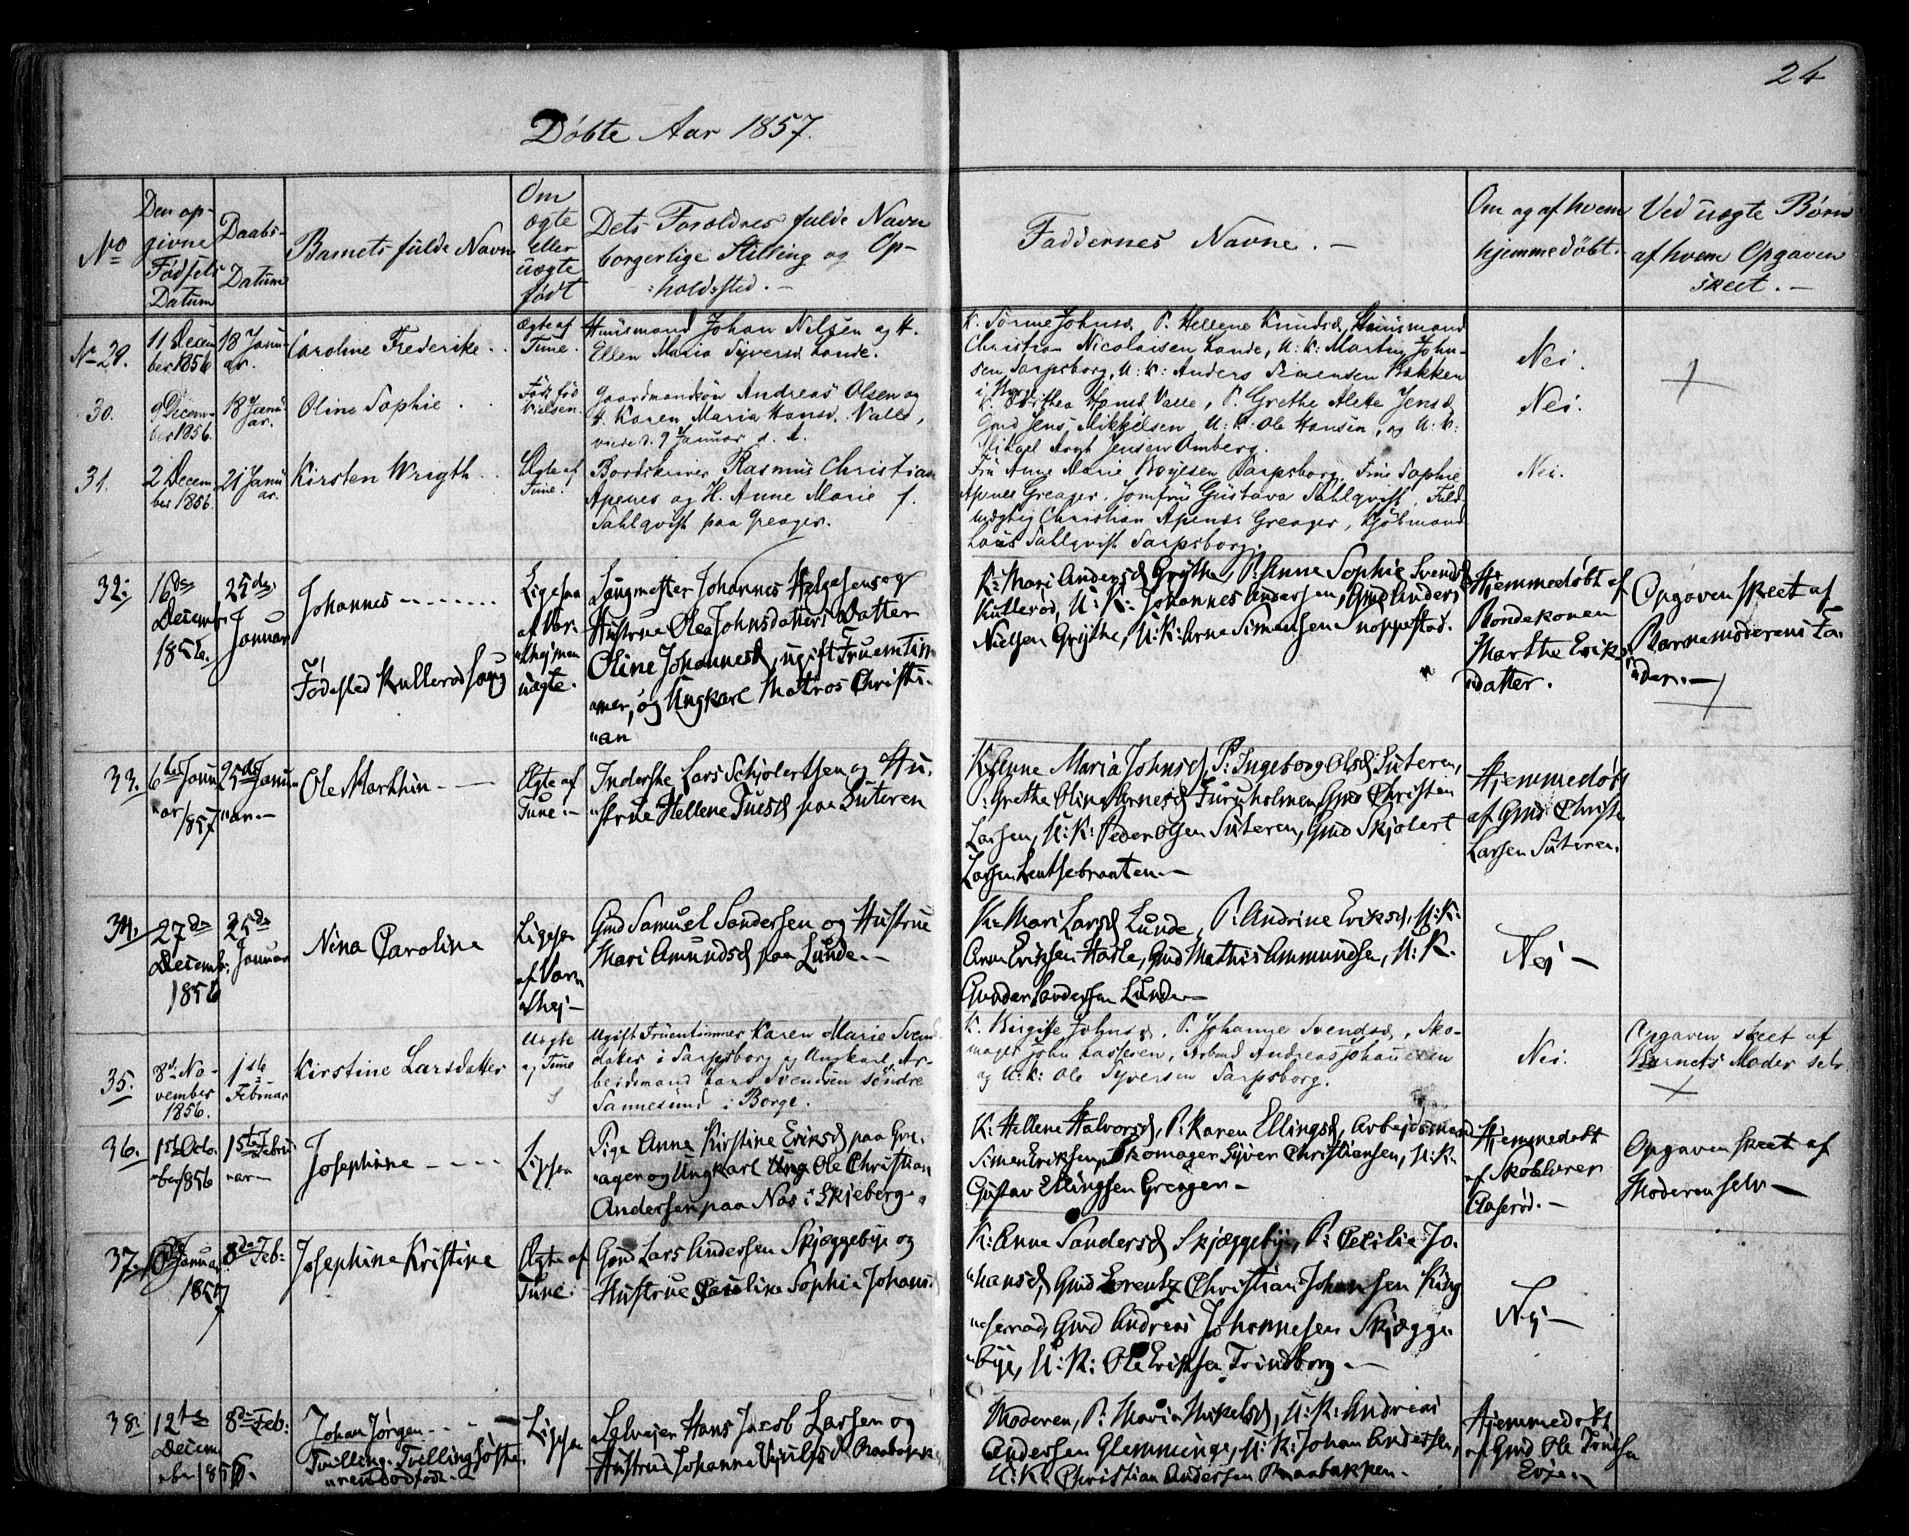 24
Døbte Aar 1857.
No
Den op-
givne
Fødsels
Datum
Daabs-
Datum
Barnets fulde Navn
Om
ægte
eller
uægte
født
Dets Foræ­ldres fulde Navn
borgerlige Stilling og Op-
holdssted. -
Faddernes Navne. -
Om og af hvem
hjemmedøbt.
Ved uægte Børn
af hvem Opgaven
skeet. -
No 29.
11 Decem
ber 1856
18 Janu-
ar.
Caroline Frederike
Ægte af
Tune.
Huusmand Johan Nilsen og H.
Ellen Maria Syversd Lande.
K. Johnsd, P. Hellene Knudsd, Huusmand
Christian Nicolaisen Lande, U: K: Martin John-
sen Sarpsborg, U: K: Anders Simensen Bakken
Nei.
30.
9 Decem-
ber 1856.
18 Janu
ar.
Oline Sophie
Gaardmandsøn Andreas Olsen og
H. Karen Maria Hansd. Valle,
viede d. 9 Januar d. A.
K. Hansd Valle, P. Grethe Alete Jensd
Gmd Jens Mikkelsen, U: K: Ole Hansen, og U: K:
Mikael Jensen Omberg.
Nei.
31.
2 Decem-
ber 1856.
21 Janu
ar.
Kirsten Wrigth
Ægte af
Tune.
Bordskriver Rasmus Christian
Apenes og H. Anne Marie f.
Sahlqvist paa Greager.
Fru Anne Marie Sarpsborg, Frue Sophie
Apnes Greager, Jomfru Gustava Sahlqvist, Fuld-
mægtig Christian Apenes Greager, Kjøbmand
Sahlqvist Sarpsborg.
Nei.
32.
16de
Decemb.
1856.
25de
Januar
Johannes
Fødested Kullerød Saug
Ligesaa
af Var-
uægte.
Saugmester Johannes Helgesens og
Hustrue Olea Johnsdatters Datter
Oline Johannesd, ugift Fruentim
mer, og Ungkarl Matros Christi-
an
K: Mari Andersd Grythe, P: Anne Sophie Svendsd
Kullerød, U: K: Johannes Andersen, Gmd Anders
Nielsen Grythe, U: K: Arne Simensen Snoppestad.
Hjemmedøbt af
Bondekonen
Marthe Eriks
datter.
Opgaven skeet af
Barnemoderens Fa-
der. -
33.
6te Janu
ar
1857
25de Janu
ar. -
Ole Marthin
Ægte af
Tune. -
Inderste Lars Schjolertsen og Hu-
strue Hellene Tuesd paa Suteren
K: Anne Maria Johnsd, P: Ingeborg Olsd Suteren,
P: Grethe Oline Arnesd Furuholmen Gmd Christen
Larsen, U: K: Peder Olsen Suteren, Gmd Skjolert
Larsen Lentsebraaten. -
Hjemmedøbt
af Gmd Christ.
Larsen Suteren.
34.
27de
Decemb:
1856
25de
Januar
Nina Caroline
Ligesaa
af Varn
Gmd Samuel Sandersen og Hustrue
Mari Amundsd paa Lunde. -
K: Mari Larsd Lunde, P: Andrine Eriksd, U: K:
Arne Eriksen Hasle, Gmd Mathis Ammundsen, U: K.
Gunder Sandersen Lunde -
Nej -
35.
8de No-
vember
1856.
1ste
Februar
Kirstine Larsdatter
Uægte
af Tune
Ugift Fruentimmer Karen Marie Svend
datter i Sarpsborg og Ungkarl, Ar-
beidsmand Lars Svendsen søndre
Sannesund i Borge.
K. Birgitte Johnsd, P. Johanne Svendsd, Sko-
mager John Arbmd Andreas Johannesen
og U: K: Ole Syversen Sarpsborg.
Nei.
Opgaven skeet af
Barnets Moder selv
36.
1ste Octo-
ber 1856
1ste Febru
ar -
Josephine
Ligesaa
Pige Anne Kirstine Eriksd paa Gre-
ager og Ungkarl Ole Christian
Andersen paa Næs i Skjeberg.
K: Hellene Halvorsd, P: Karen Ellingsd, Arbejdsmand
Simen Eriksen, Skomager Syver Christiansen, U: K.
Gustav Ellingsen Greager -
Hjemmedøbt
af Skolelærer
Aaserød. -
Opgaven skeet af
Moderen selv -
37.
Januar
1857
8de Feb:
Josephine Kristine
Ægte af
Tune.
Gmd Lars Andersen Skjæggebye og
Hustrue Caroline Sophia Johans.
K: Anne Sandersd Skjæggebye, P: Cecilie Jo-
hansd, Gmd Lorentz Christian Johansen Ring
Gmd Andreas Johannesen Skjægge-
bye, U: K: Ole Eriksen Trindborg. -
Nej -
38.
12te
Decem
ber 1856.
8de Feb:
Johan Jørgen
Tvilling. Tvillingsøste
ren dødfødt -
Ligesaa
Selvejer Hans Jacob Larsen og
Hustrue Johanne
Moderen, P: Maria Mikelsd, U: K: Andreas
Andersen Glemminge, U: K: Johan Andersen,
U: K. Christian Andersen Raabakken.
Hjemmedøbt
af Gmd Ole